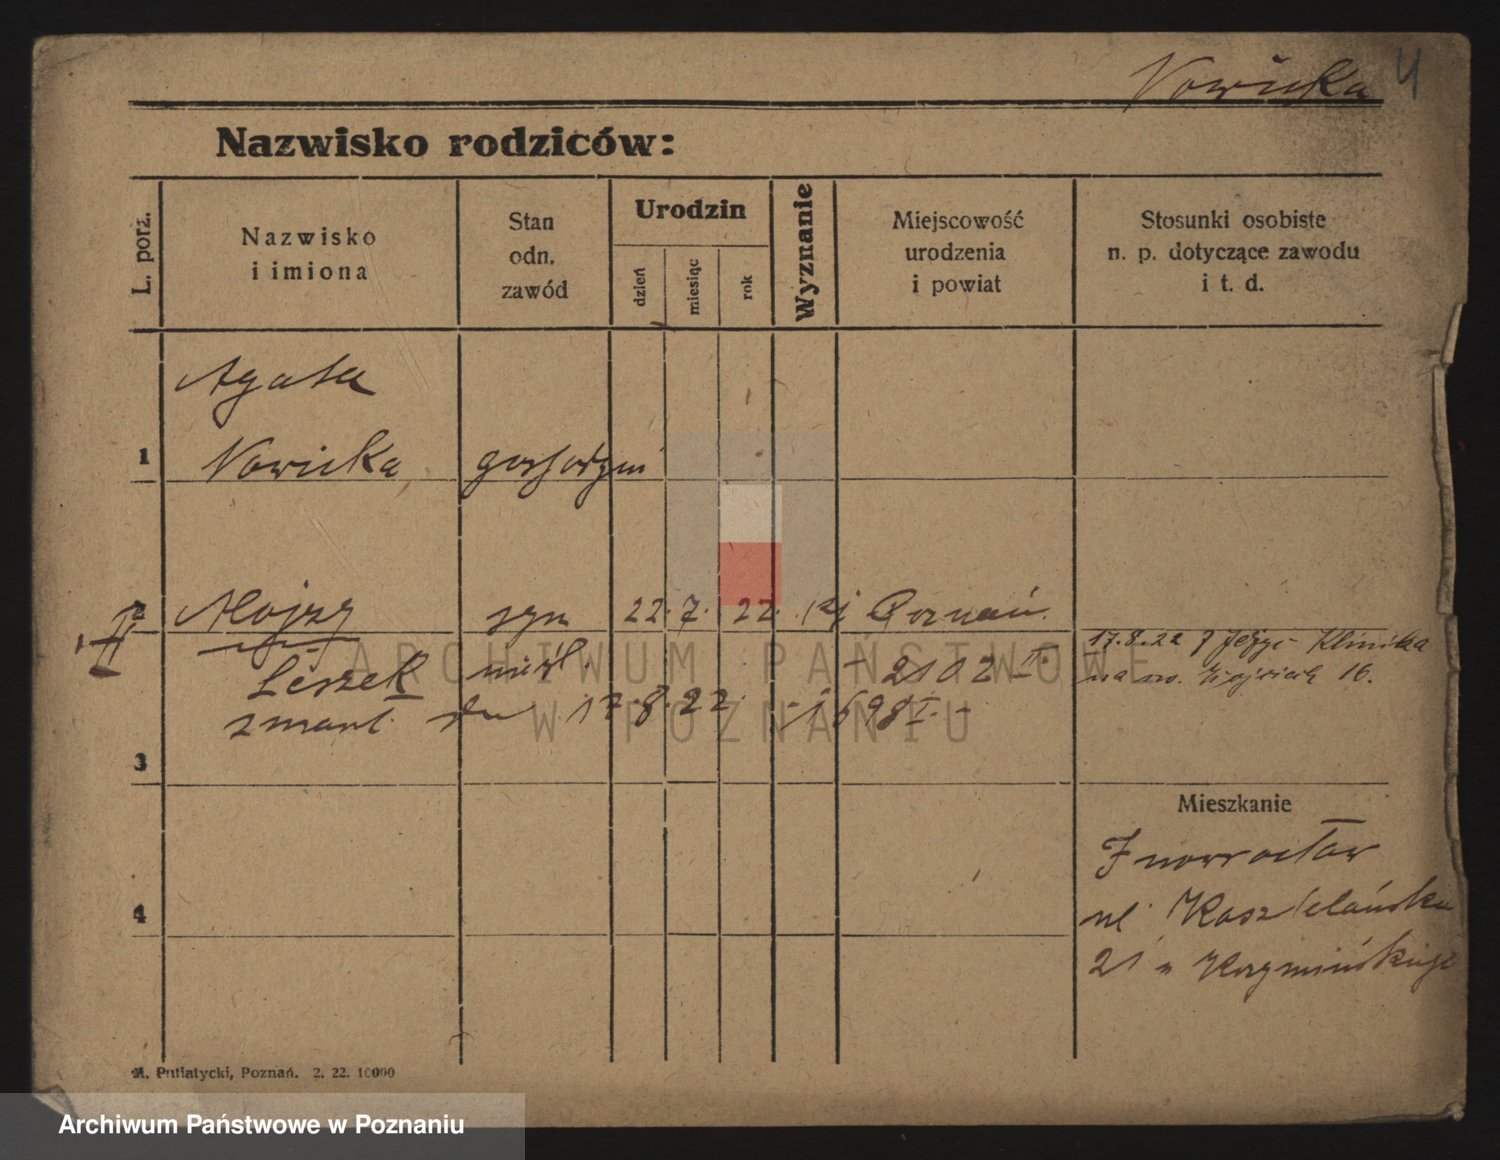 Nowicka 4
Nazwisko rodziców:
L. porz.
Nazwisko
i imiona
Stan
odn.
zawód
Urodzin
dzień
miesiąc
rok
Wyznanie
Miejscowość
urodzenia
i powiat
Stosunki osobiste
n. p. dotyczące zawodu
i t. d.
Agata
1 Nowicka
2 Alojzy syn 22. 7. 22. Poznań.
17.8.22 Klinika
Leszek - 2102
16.
zmarł 17.8.22 - 1698 I. -
3
Mieszkanie
Inowrocław
4 ul.
21
M. Putiatycki, Poznań. 2. 22. 10000
ARCHIWUM PAŃSTWOWE
W POZNANIU
Archiwum Państwowe w Poznaniu